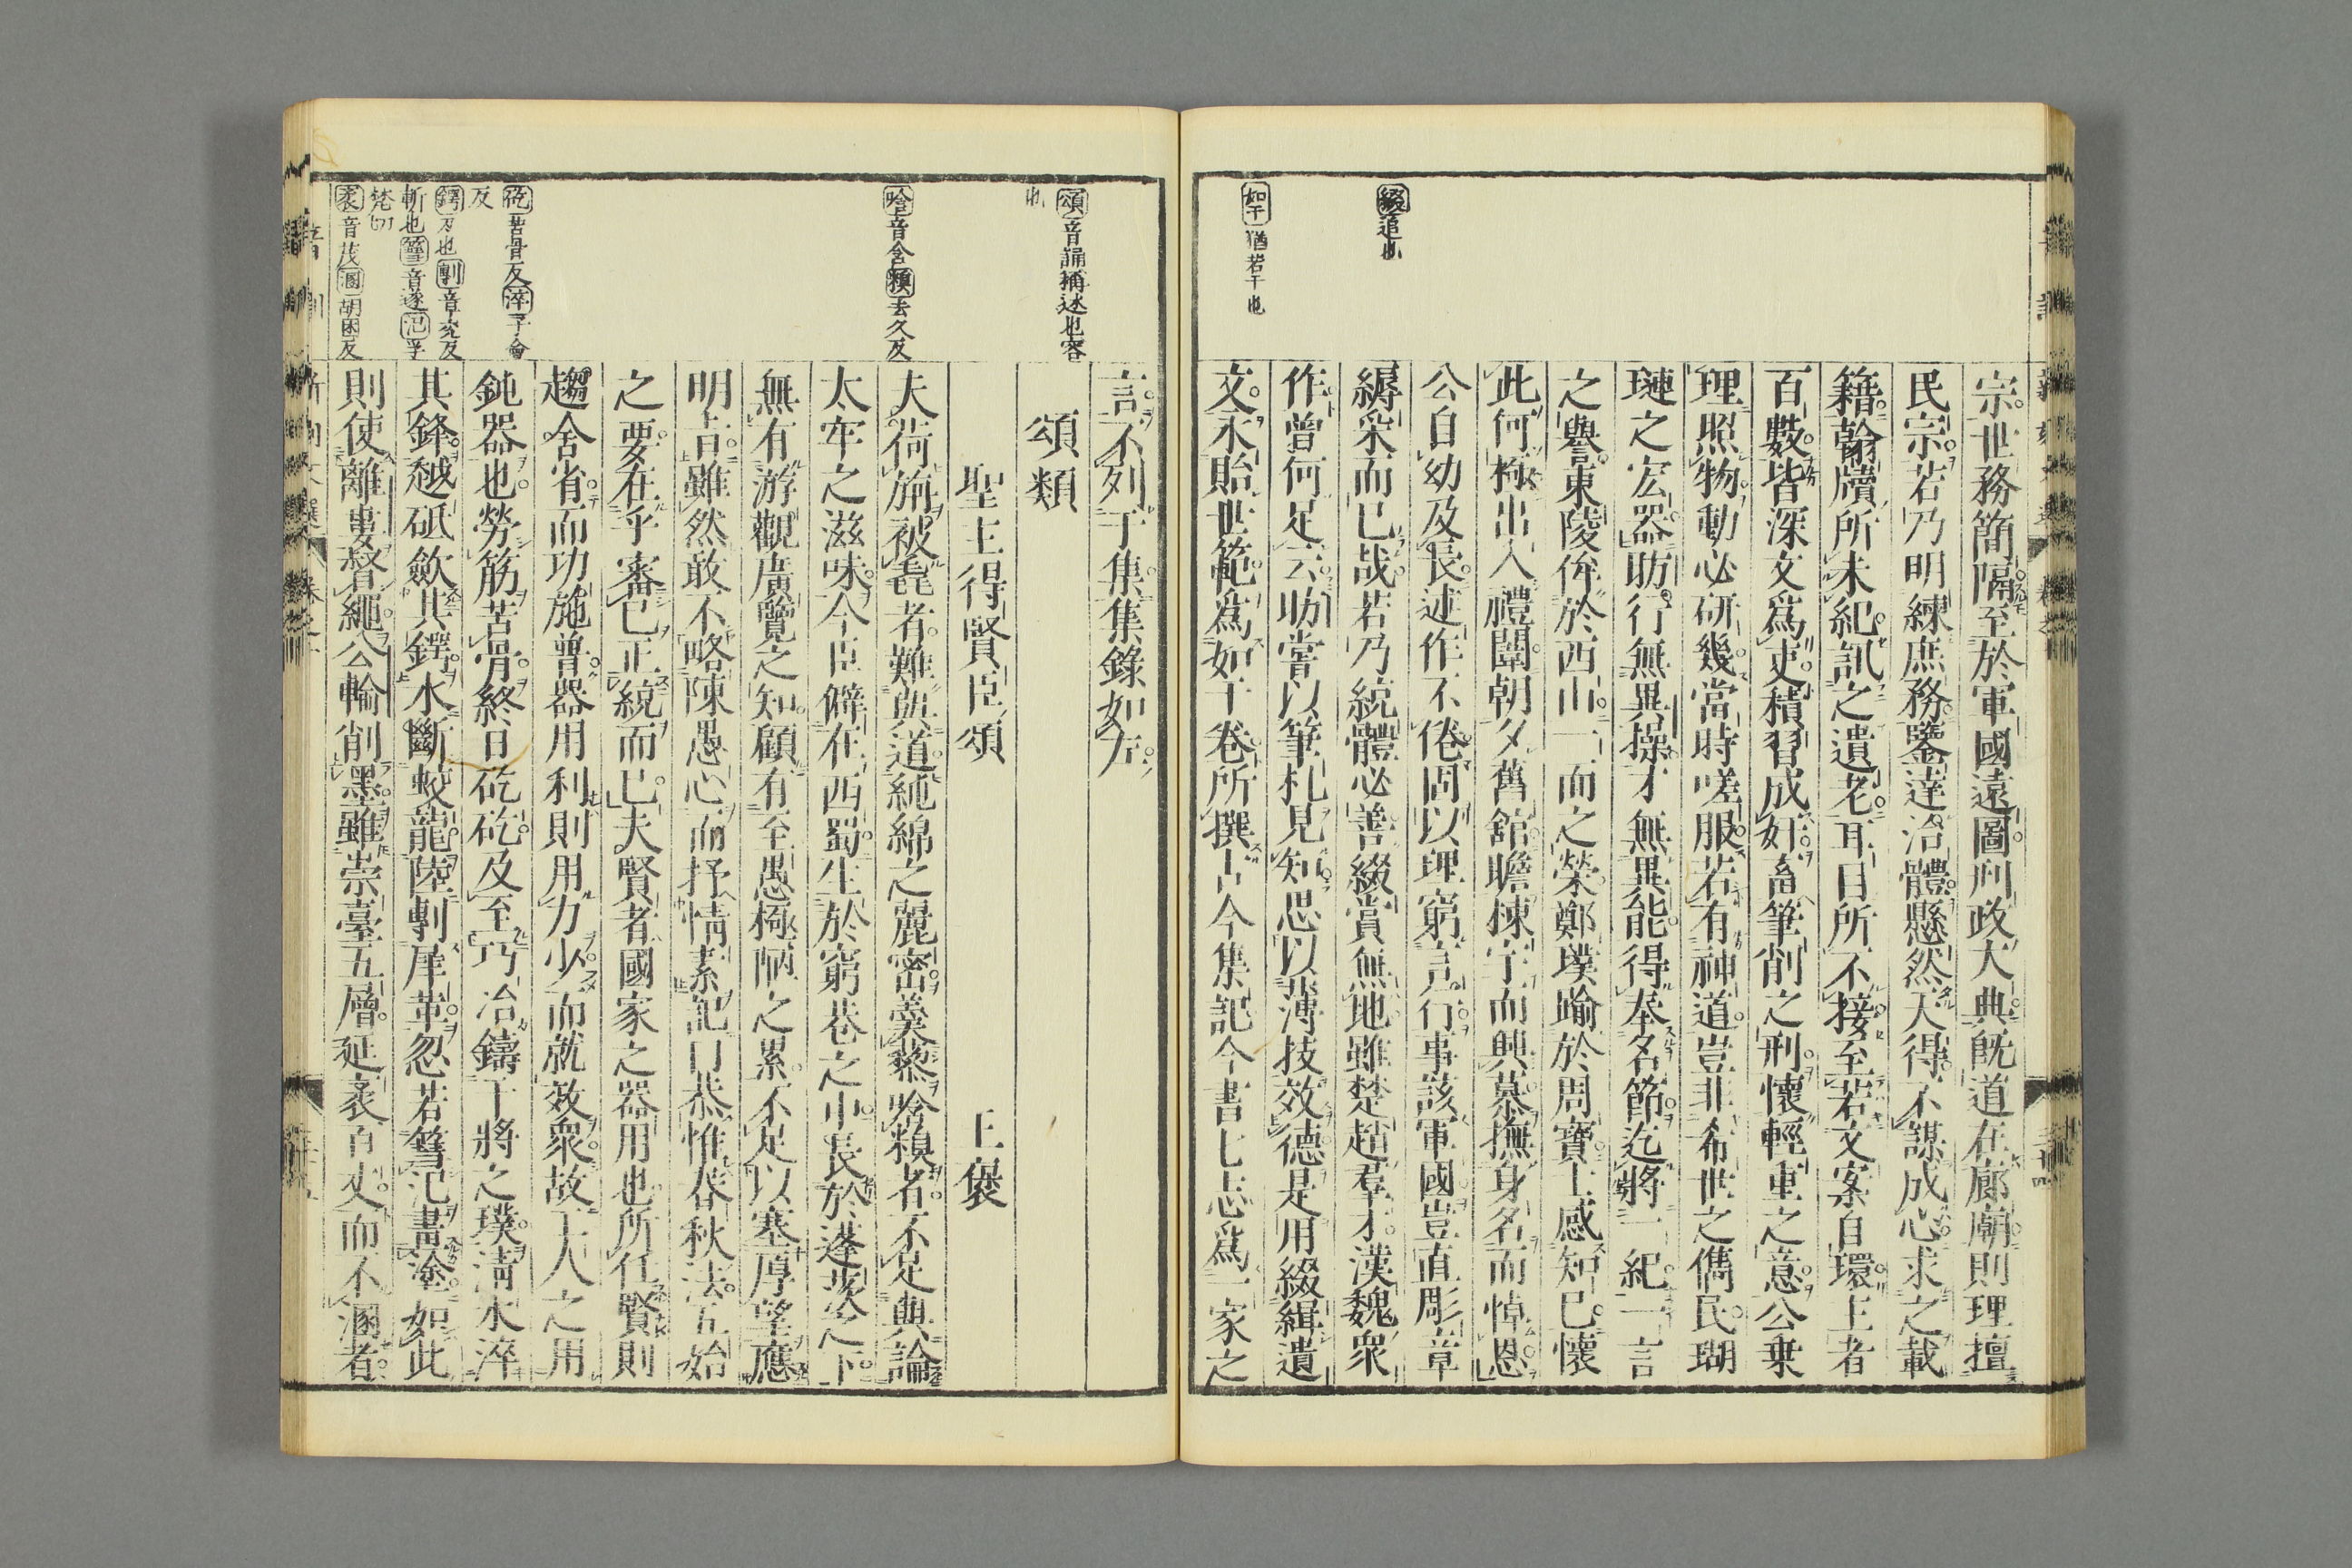 綴追也
如干猶若干也
宗世務簡隔至於軍國遠圖刑政大典既道在廊廟則理擅
民宗若乃明練庶務鑒達治體懸然天得不謀成心求之載
籍翰牘所未紀訊之遺老耳目所不接至若文案自環主者
百數皆深文爲吏積習成奸畜筆削之刑懷輕重之意公乗
理照物動必研幾當時嗟服若有神道豈非希世之儁民瑚
璉之宏器昉行無異操才無異能得奉名節迄將一紀一言
之譽東陵侔於西山一面之榮鄭璞踰於周寶士感知已懷
此何極出入禮闈朝夕舊舘瞻棟宇而興慕撫身名而悼恩
公自幼及長述作不倦固以理窮言行事該軍國豈直彫章
縟采而已哉若乃統體必善綴賞無地雖楚趙羣才漢魏衆
作曽何足云昉嘗以筆札見知思以薄技效德是用綴緝遺
文永貽世範爲如干卷所撰古今集記今書七志爲一家之
頌音誦稱述也容
也
唅音含糗去久反
矻苦骨反淬子會
反
鍔刄也剸音㝌反
斬也篲音遂氾孚
梵切
袤音茂溷胡困反
言不列于集集錄如左
頌類
聖主得賢臣頌　王褒
夫荷旃被毳者難與道純綿之麗密羹藜唅糗者不足與論
太牢之滋味今臣僻在西蜀生於窮巷之中長於蓬茨之下
無有游觀廣覽之知顧有至愚極陋之累不足以塞厚望應
明㫖雖然敢不略陳愚心而抒情素記曰恭惟春秋法五始
之要在乎審已正統而已夫賢者國家之器用也所任賢則
趨舍省而功施普器用利則用力少而就效衆故工人之用
鈍器也勞筋苦骨終日矻矻及至巧冶鑄干將之璞淸水淬
其鋒越砥斂其鍔水斷蛟龍陸剸犀革忽若篲氾畫塗如此
則使離婁督繩公輸削墨雖崇臺五層延袤百丈而不溷者